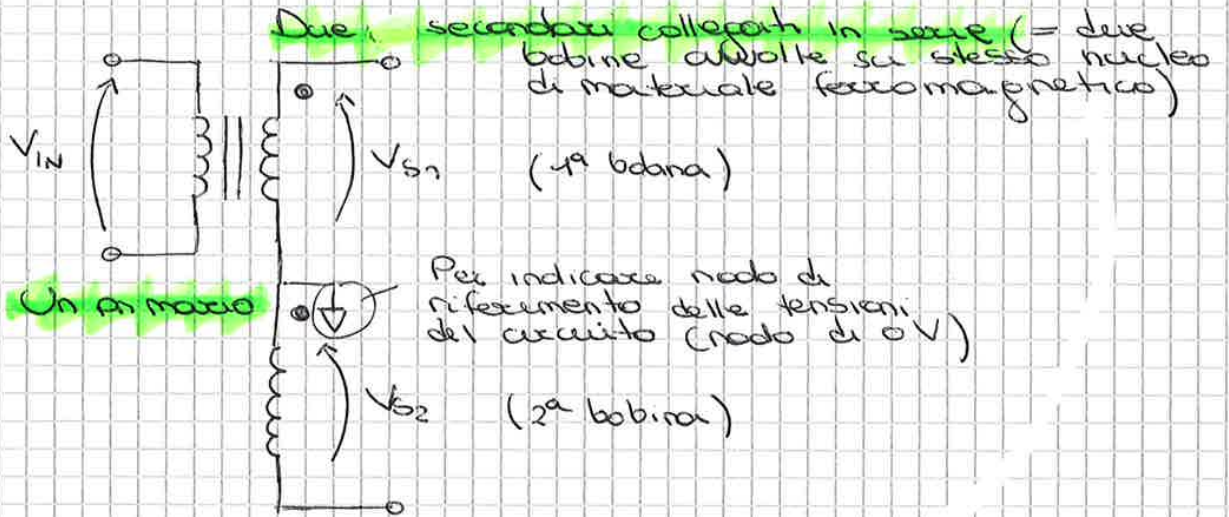 Due secondari collegati in serie (= due
bobine avvolte su stesso nucleo
di materiale ferromagnetico)
VIN
VS1 (1ª bobina)
Per indicare nodo di
Un primario
riferimento delle tensioni
del circuito (nodo di 0V)
VS2 (2ª bobina)